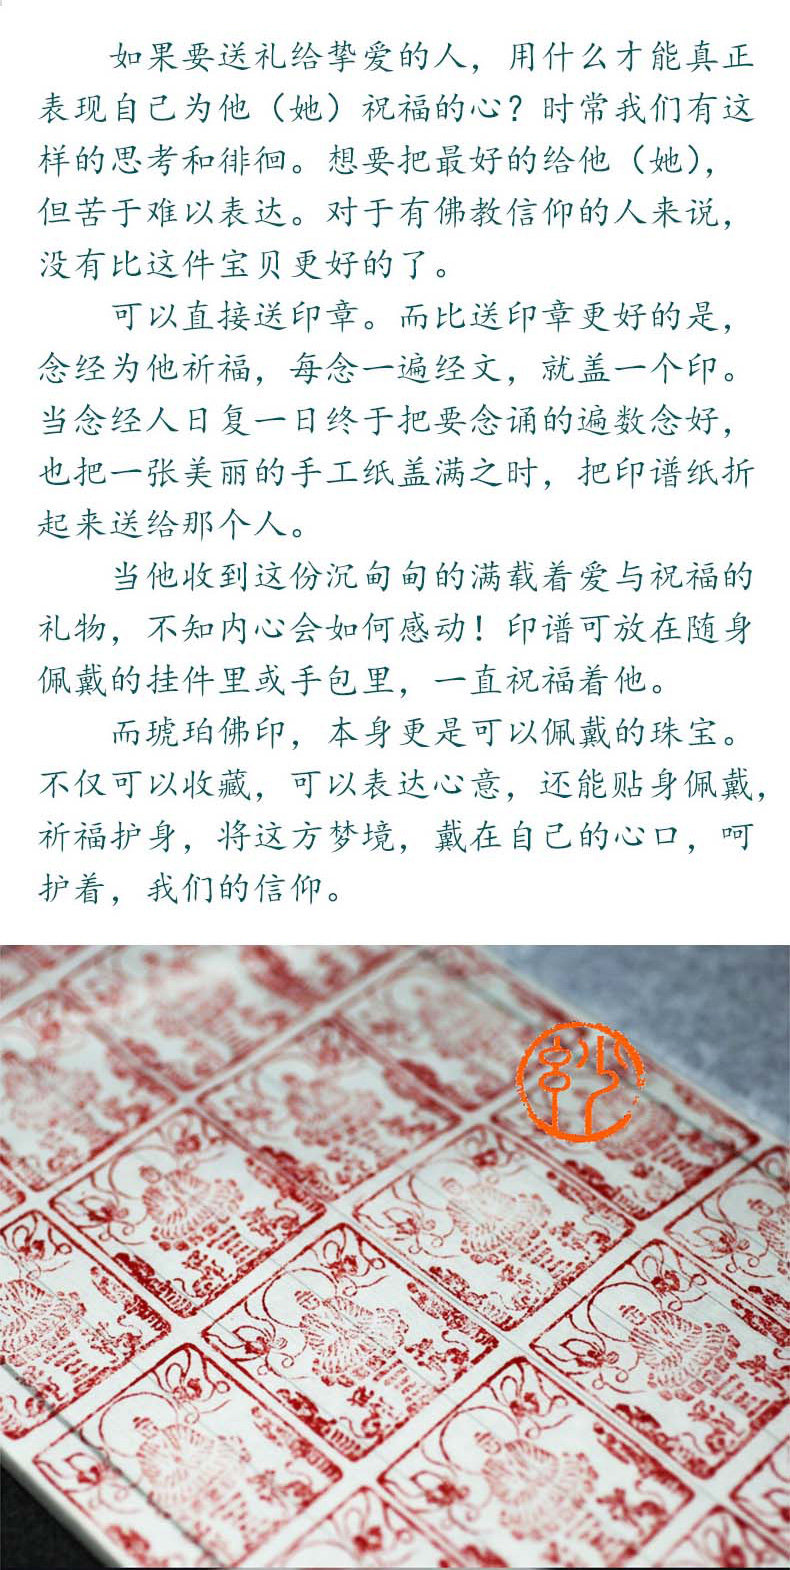 如果要送礼给挚爱的人，用什么才能真正
表现自己为他（她）祝福的心？时常我们有这
样的思考和徘徊。想要把最好的给他（她），
但苦于难以表达。对于有佛教信仰的人来说，
没有比这件宝贝更好的了。
可以直接送印章。而比送印章更好的是，
念经为他祈福，每念一遍经文，就盖一个印。
当念经人日复一日终于把要念诵的遍数念好，
也把一张美丽的手工纸盖满之时，把印谱纸折
起来送给那个人。
当他收到这份沉甸甸的满载着爱与祝福的
礼物，不知内心会如何感动！印谱可放在随身
佩戴的挂件里或手包里，一直祝福着他。
而琥珀佛印，本身更是可以佩戴的珠宝。
不仅可以收藏，可以表达心意，还能贴身佩戴，
祈福护身，将这方梦境，戴在自己的心口，呵
护着，我们的信仰。